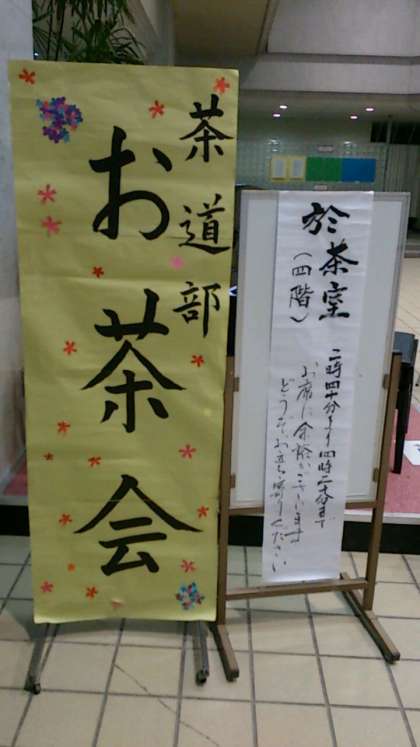 茶道部
お茶会
於茶室
(四階)
二時四十分より四時二十分まで
お席に余裕がございます
どうぞお立ち寄りください